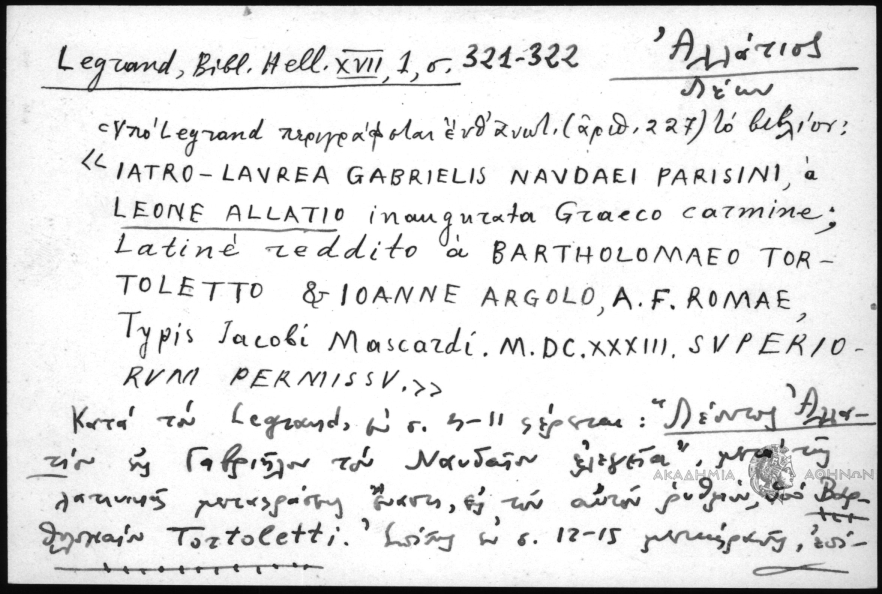 Legrand, Bibl. Hell. XVII, 1, σ. 321-322
Ἀλλάτιος
Λέων
Ὑπό Legrand περιγράφεται ἐνθ' ἀνωτ. (ἀριθ. 227) τό βιβλίον:
« IATRO-LAVREA GABRIELIS NAVDAEI PARISINI, à
LEONE ALLATIO inaugurata Graeco carmine;
Latinè reddito à BARTHOLOMAEO TOR-
TOLETTO & IOANNE ARGOLO, A. F. ROMAE,
Typis Jacobi Mascardi. M.DC.XXXIII. SVPERIO-
RVM PERMISSV.»
Κατά τόν Legrand, ἐν σ. 5-11 φέρεται: "Λέοντος Ἀλλα-
τίου εἰς Γαβριῆλον τόν Ναυδαῖον ἐλεγεῖα", μετά τῆς
ΑΚΑΔΗΜΙΑ ΑΘΗΝΩΝ
λατινικῆς μεταφράσεως εἰς τόν αὐτόν ῥυθμόν, ὑπό Βαρ-
θολομαίου Tortoletti. Ἐπίσης ἐν σ. 12-15 μετάφρασις, ἐπί-